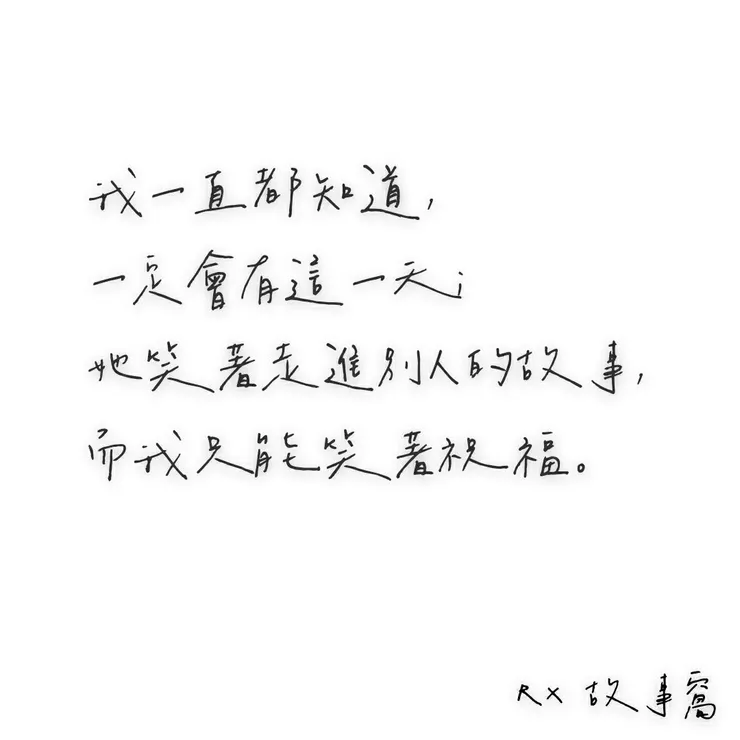 我一直都知道,
一定會有這一天;
她笑著走進別人的故事,
而我只能笑著祝福。
RX 故事窩